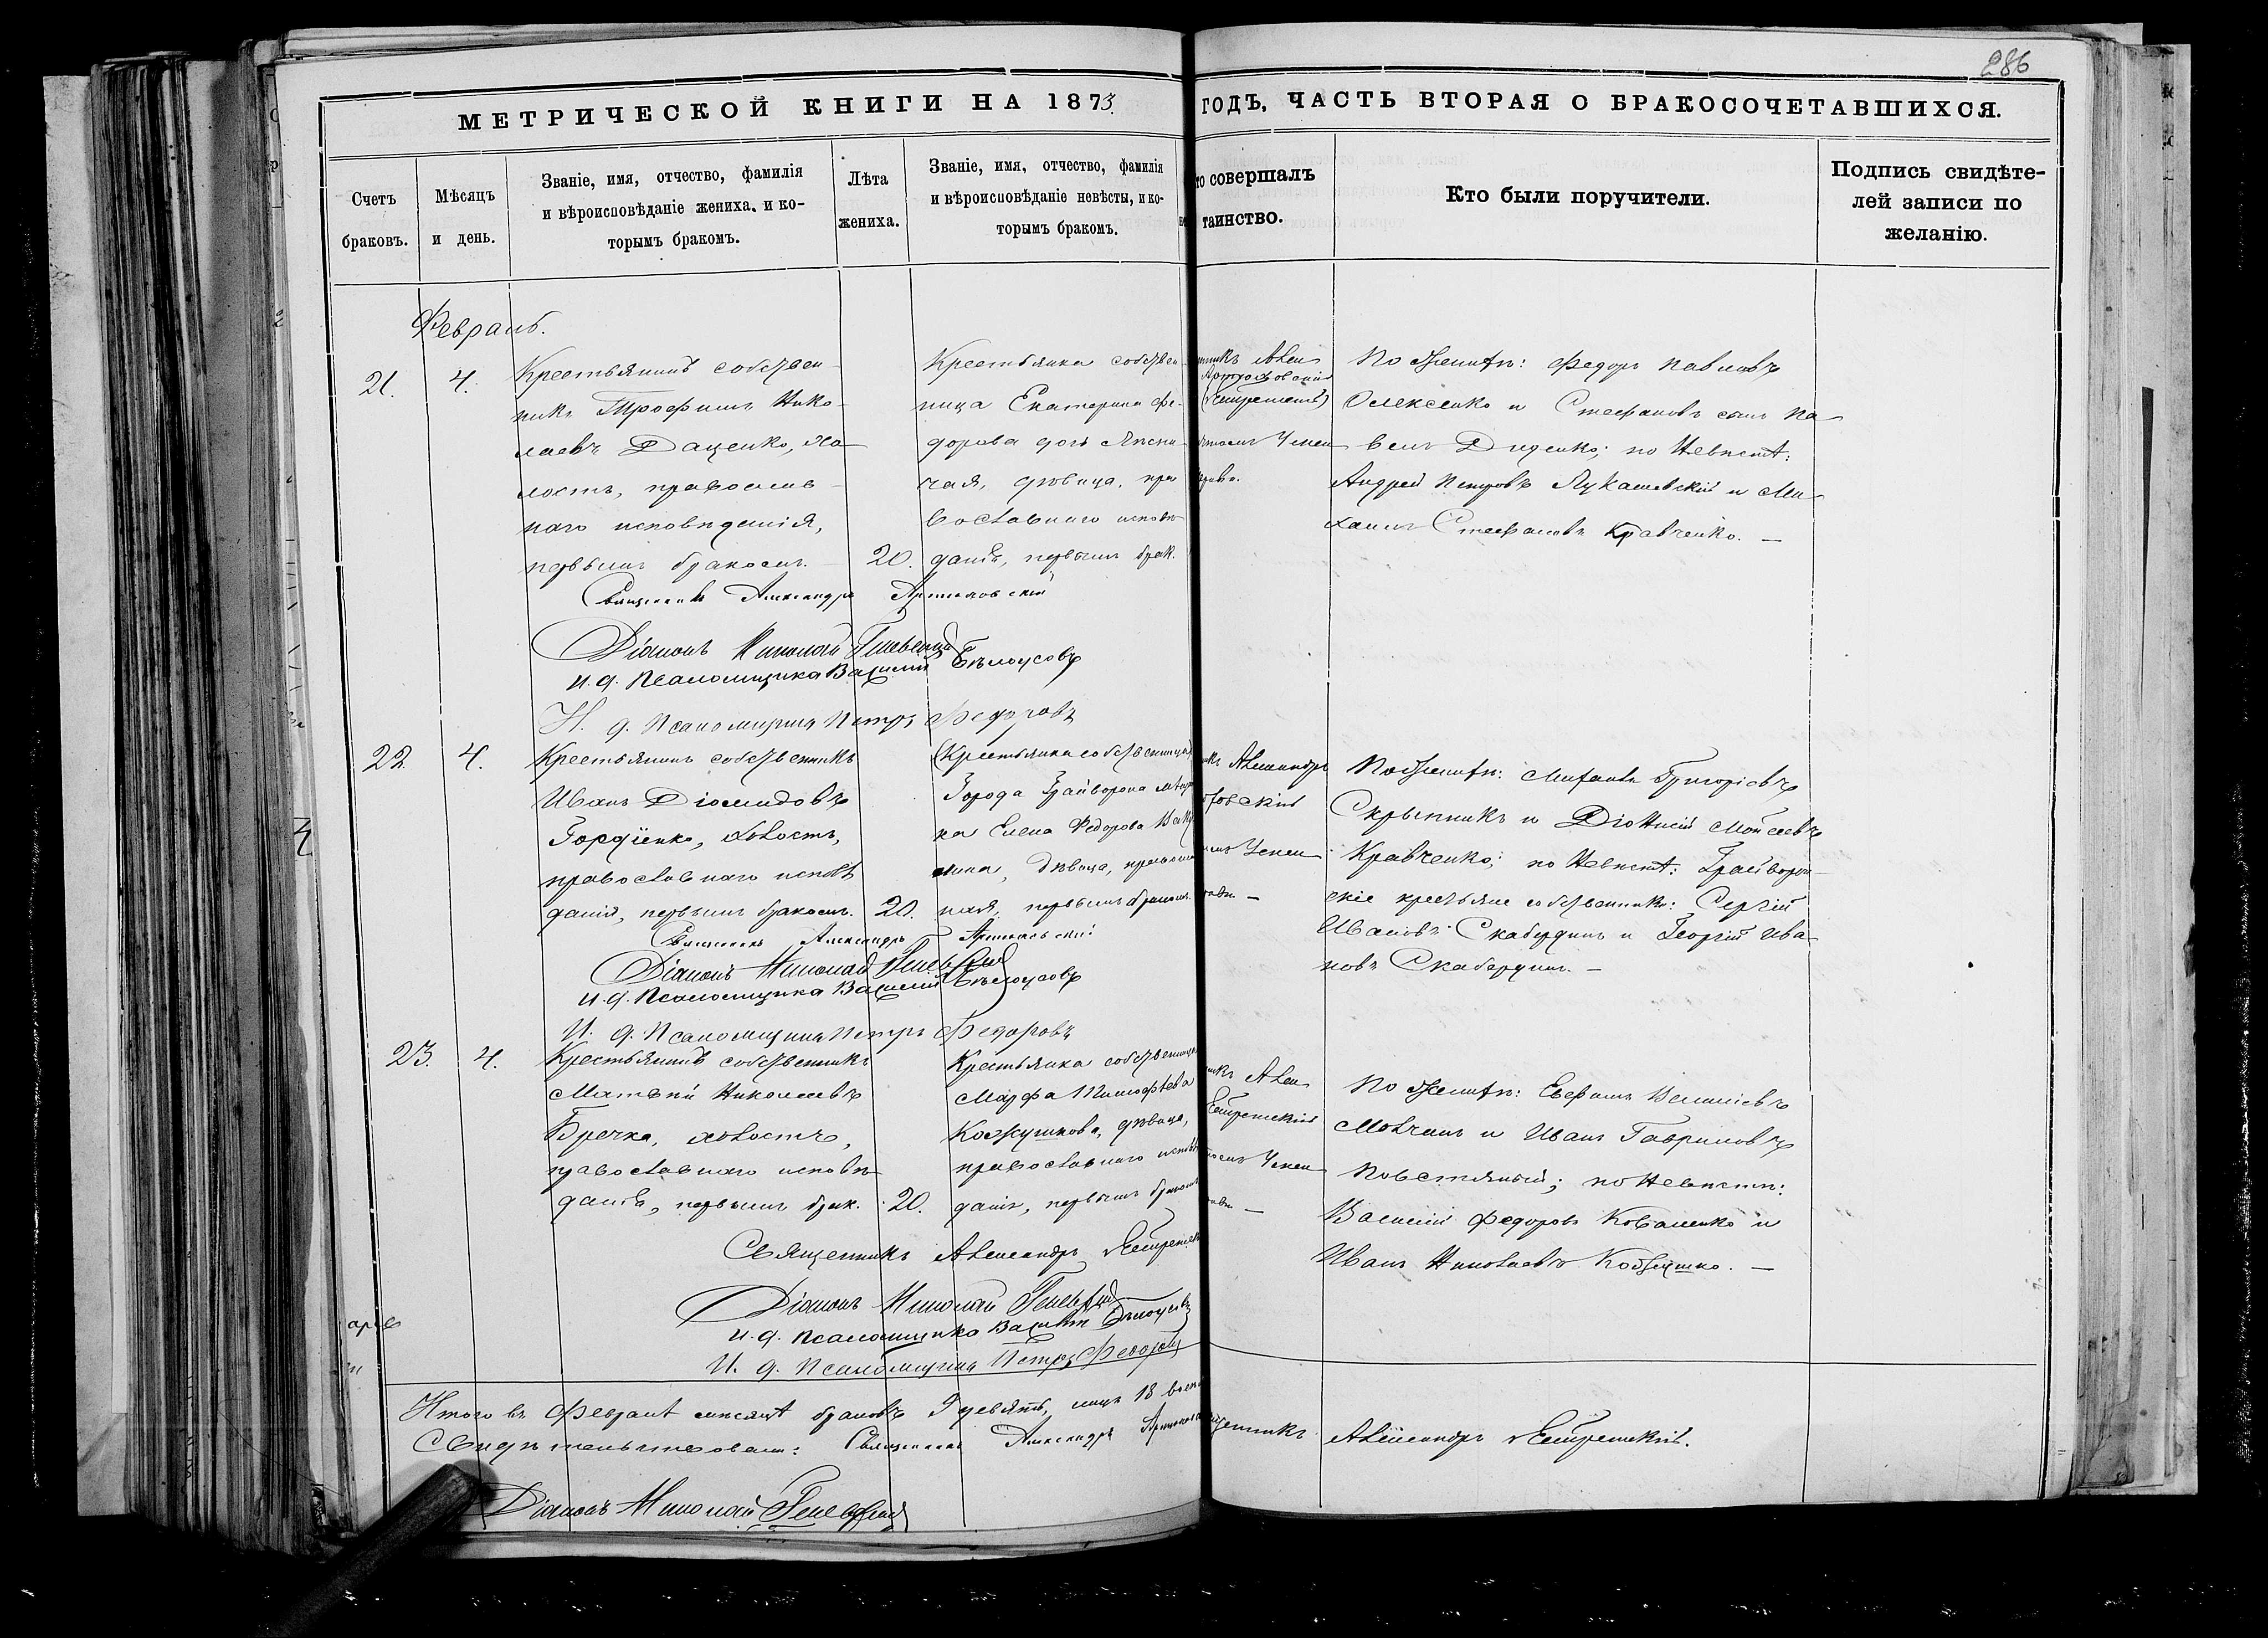 286
МЕТРИЧЕСКОЙ КНИГИ НА 1873.
ГОДЪ, ЧАСТЬ ВТОРАЯ О БРАКОСОЧЕТАВШИХСЯ.
Счетъ браковъ.
Мѣсяцъ и день.
Званіе, имя, отчество, фамилія
и вѣроисповѣданіе жениха, и ко-
торымъ бракомъ.
Лѣта
жениха.
Званіе, имя, отчество, фамилія
и вѣроисповѣданіе невѣсты, и ко-
торымъ бракомъ.
совершалъ
таинство.
Кто были поручители.
Подпись свидѣте-
лей записи по
желанію.
Февраль.
21.
4.
Крестьянинъ собствен-
никъ Трофимъ Нико-
лаевъ Даценко, хо-
лостъ, православ-
наго исповѣданія,
первымъ бракомъ.
20.
Крестьянка собствен-
ница Екатерина Фе-
дорова дочь
чая, дѣвица, пра
вославнаго исповѣ
данія, первымъ брак.
По женихѣ: Федоръ Павловъ
Олексенко и Стефановъ сынъ Па-
велъ Диденко; по невѣстѣ:
Андрей Петровъ Лукашевскій и Ми-
хаилъ Стефановъ Кравченко. —
Священникъ Александръ
Діаконъ Николай
и. д. Псаломщика Василій Бѣлоусовъ
И. д. Псаломщика Петръ Федоровъ
22.
4.
Крестьянинъ собственникъ
Иванъ Діомидовъ
Гордіенко, холостъ,
православнаго исповѣ
данія, первымъ бракомъ.
20.
(Крестьянка собственница)
Города Грайворона
ка Елена Федорова
дѣвица, православ
ная, первымъ бракомъ.
Александръ
По женихѣ: Григорьевъ
Скрыпникъ и Діонисій Моисеевъ
Кравченко; по невѣстѣ: Грайворон-
скіе крестьяне собственники: Сергій
Ивановъ Скабердинъ и Георгій Ива-
новъ Скабердинъ. —
Священникъ Александръ
Діаконъ Николай
и. д. Псаломщика Василій Бѣлоусовъ
И. д. Псаломщика Петръ Федоровъ
23.
4.
Крестьянинъ собственникъ
Матѳей Николаевъ
Бречка, холостъ,
православнаго исповѣ
данія, первымъ брак.
20.
Крестьянка собственница
Марфа Тимофѣева
Кожушкова, дѣвица,
православнаго исповѣ
данія, первымъ бракомъ
По женихѣ: Евфимъ Василіевъ
Мовчанъ и Иванъ Гавриловъ
Повстяный; по невѣстѣ:
Василій Федоровъ Коваленко и
Иванъ Николаевъ
Священникъ Александръ
Діаконъ Николай
и. д. Псаломщика Василій Бѣлоусовъ
И. д. Псаломщика Петръ Федоровъ
Итого въ Февралѣ мѣсяцѣ браковъ 9 девять, лицъ 18
Свидѣтельствовали: Священникъ Александръ
Александръ
Діаконъ Николай